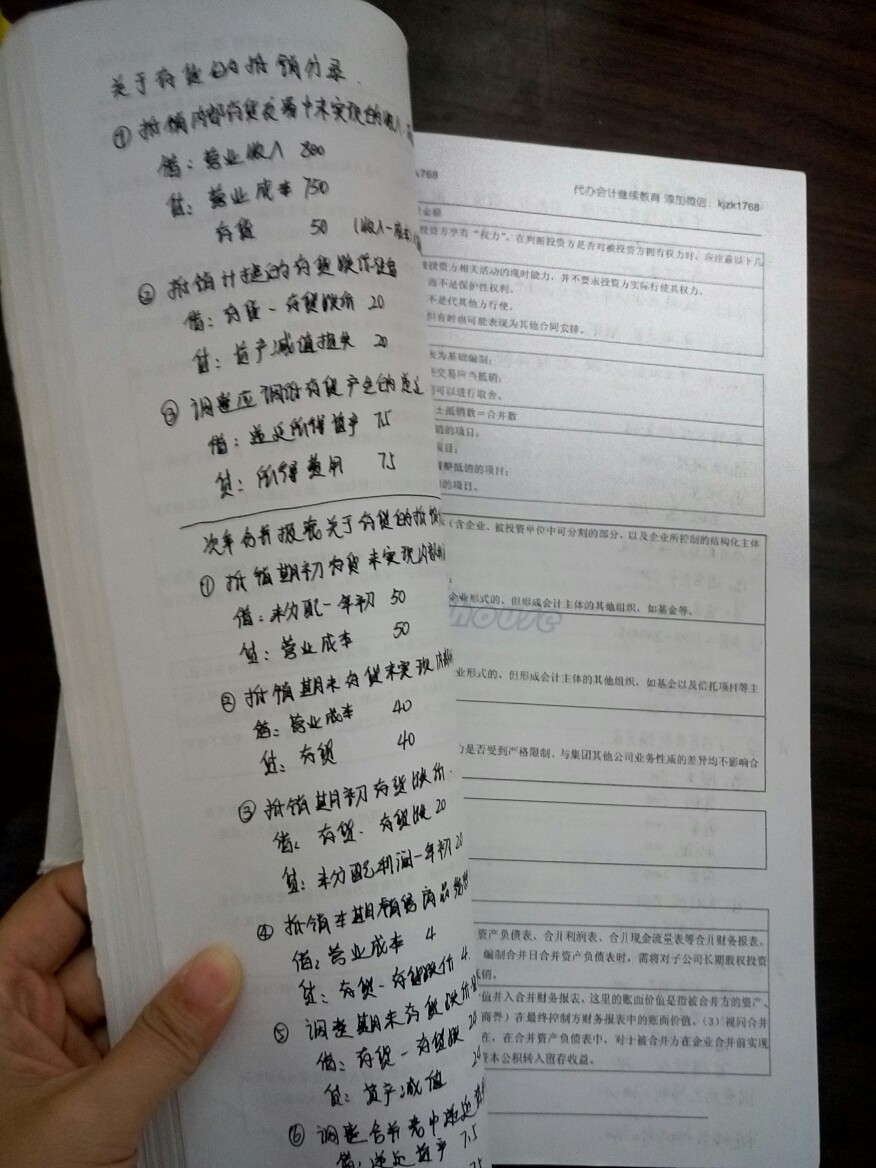 关于存货的抵销分录.
① 抵销内部存货交易中未实现的收入、
借：营业收入 800
贷：营业成本 750
存货 50 (收入-成本)
② 抵销计提的存货跌价准备
借：存货-存货跌价 20
贷：资产减值损失 20
③ 调整应调减存货产生的递延
借：递延所得资产 7.5
贷：所得费用 7.5
次年合并报表关于存货的抵销
① 抵销期初存货未实现内部
借：未分配-年初 50
贷：营业成本 50
② 抵销期末存货未实现内部
借：营业成本 40
贷：存货 40
③ 抵销期初存货跌价.
借：存货-存货跌 20
贷：未分配利润-年初 20
④ 抵销本期销售商品
借：营业成本 4
贷：存货-存货跌价 4
⑤ 调整期末存货跌价
借：存货-存货跌
贷：资产减值
⑥ 调整合并表中递延
借：递延资产 7.5
7.5
768
代办会计继续教育 添加微信：kjzk1768
金额
投资方享有“权力”。在判断投资方是否对被投资方拥有权力时，应注意以下几
投资方相关活动的现时能力，并不要求投资方实际行使其权力。
而不是保护性权利。
不是代其他方行使。
但有时也可能表现为其他合同安排。
表为基础编制；
交易应当抵销；
可以进行取舍。
抵销数＝合并数
销的项目；
项目；
调整抵销的项目；
的项目。
（含企业、被投资单位中可分割的部分，以及企业所控制的结构化主体
企业形式的、但形成会计主体的其他组织，如基金等。
house
业形式的、但形成会计主体的其他组织，如基金以及信托项目等主
力是否受到严格限制、与集团其他公司业务性质的差异均不影响合
资产负债表、合并利润表、合并现金流量表等合并财务报表。
编制合并日合并资产负债表时，需将对子公司长期股权投资
抵销。
值并入合并财务报表。这里的账面价值是指被合并方的资产、
商誉）在最终控制方财务报表中的账面价值。（3）视同合并
在，在合并资产负债表中，对于被合并方在企业合并前实现
资本公积转入留存收益。